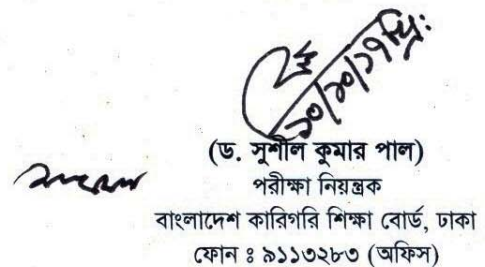 ১০/১০/১৭খ্রি:
(ড. সুশীল কুমার পাল)
পরীক্ষা নিয়ন্ত্রক
বাংলাদেশ কারিগরি শিক্ষা বোর্ড, ঢাকা
ফোন ঃ ৯১১৩২৮৩ (অফিস)